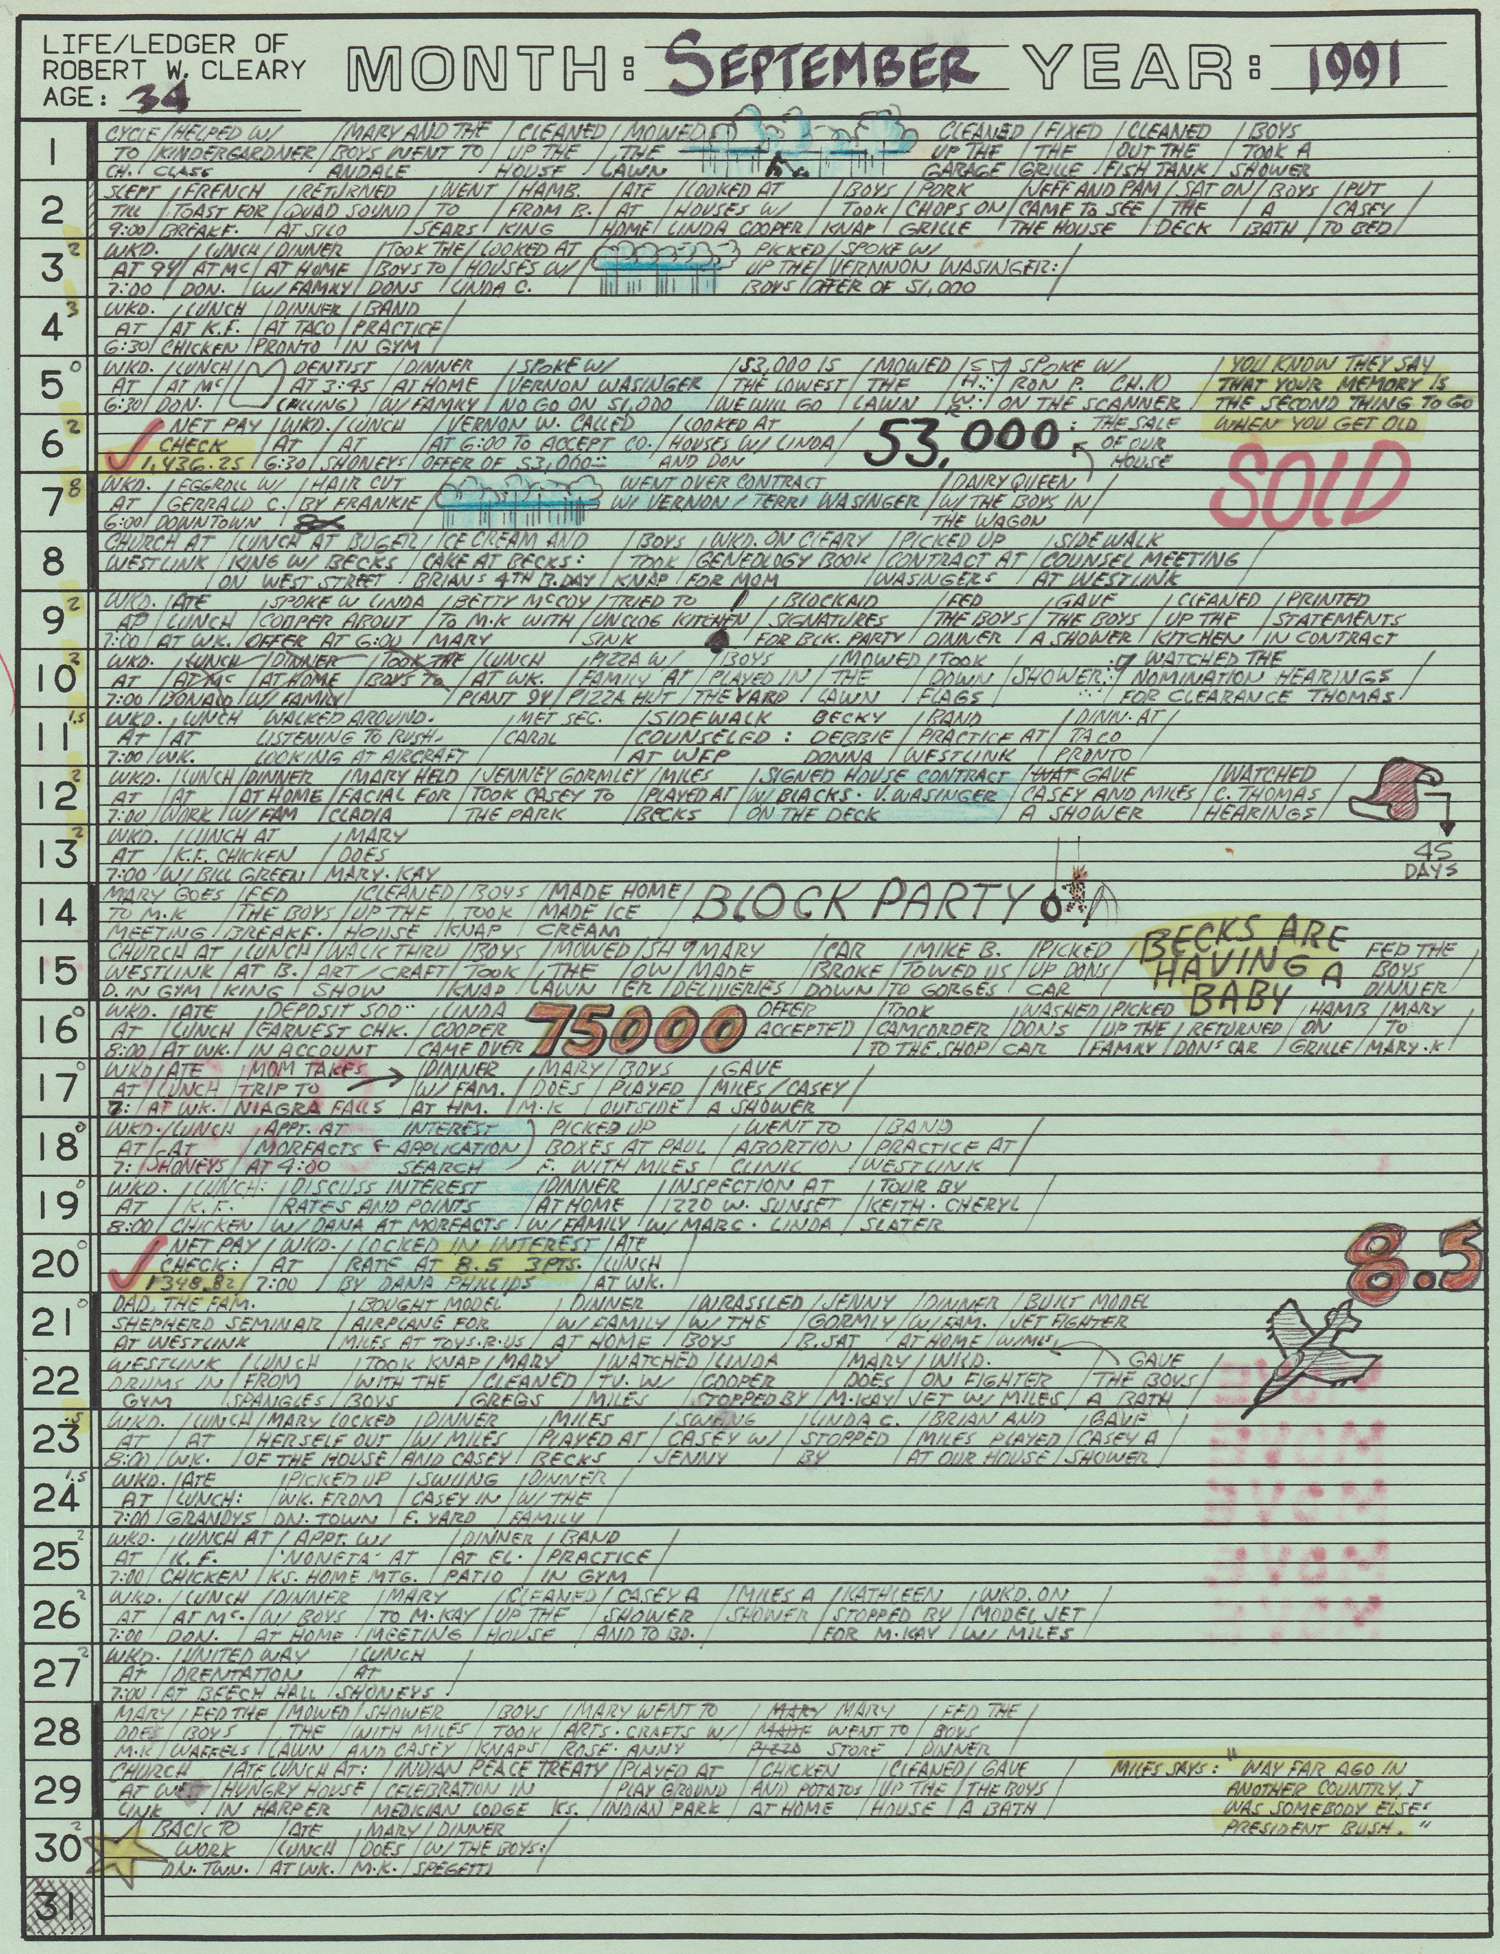 LIFE/LEDGER OF
ROBERT W. CLEARY
AGE: 34
MONTH: SEPTEMBER YEAR: 1991
1
CYCLE / HELPED W/ / MARY AND THE / CLEANED / MOWED CLEANED / FIXED / CLEANED / BOYS
TO / KINDERGARDNER / BOYS WENT TO / UP THE / THE UP THE / THE / OUT THE / TOOK A
CH. / CLASS ANDALE / HOUSE / LAWN GARAGE / GRILLE / FISH TANK / SHOWER
2
SLEPT / FRENCH / RETURNED / WENT / HAMB. / ATE / LOOKED AT / BOYS / PORK / JEFF AND PAM / SAT ON / BOYS / PUT
TILL / TOAST FOR / QUAD SOUND / TO / FROM B. / AT / HOUSES W/ / TOOK / CHOPS ON / CAME TO SEE / THE / A / CASEY
9:00 / BREAKF. / AT SILO / SEARS / KING / HOME / LINDA COOPER / KNAP / GRILLE / THE HOUSE / DECK / BATH / TO BED
3 2
WKD. / LUNCH / DINNER / TOOK THE / LOOKED AT PICKED / SPOKE W/
AT 94 / AT MC / AT HOME / BOYS TO / HOUSES W/ UP THE / VERNNON WASINGER:
7:00 / DON. / W/ FAMILY / DONS / LINDA C. BOYS / OFFER OF 51,000
4 3
WKD. / LUNCH / DINNER / BAND
AT / AT K.F. / AT TACO / PRACTICE
6:30 / CHICKEN / PRONTO / IN GYM
5 0
WKD. / LUNCH / DENTIST / DINNER / SPOKE W/ / 53,000 IS / MOWED / SPOKE W/ YOU KNOW THEY SAY
AT / AT MC / AT 3:45 / AT HOME / VERNON WASINGER / THE LOWEST / THE / RON P. CH.10 THAT YOUR MEMORY IS
6:30 / DON. (FILLING) / W/ FAMILY / NO GO ON 51,000 / WE WILL GO / LAWN / ON THE SCANNER THE SECOND THING TO GO
WHEN YOU GET OLD
6 2
NET PAY / WKD. / LUNCH / VERNON W. CALLED / LOOKED AT / 53,000 : THE SALE
CHECK / AT / AT / AT 6:00 TO ACCEPT CO. / HOUSES W/ LINDA OF OUR
1,436.25 / 6:30 / SHONEYS / OFFER OF 53,000 / AND DON HOUSE
SOLD
7 8
WKD. / EGGROLL W/ / HAIR CUT WENT OVER CONTRACT / DAIRY QUEEN
AT / GERRALD C. / BY FRANKIE / W/ VERNON / TERRI WASINGER / W/ THE BOYS IN
6:00 / DOWNTOWN THE WAGON
8
CHURCH AT / LUNCH AT BUGER / ICE CREAM AND / BOYS / WKD. ON CLEARY / PICKED UP / SIDEWALK
WESTLINK / KING W/ BECKS / CAKE AT BECKS: / TOOK / GENEOLOGY BOOK / CONTRACT AT / COUNSEL MEETING
ON WEST STREET / BRIANS 4TH B.DAY / KNAP / FOR MOM / WASINGERS / AT WESTLINK
9 2
WKD. / ATE / SPOKE W LINDA / BETTY MCCOY / TRIED TO / BLOCKAID / FED / GAVE / CLEANED / PRINTED
AT / LUNCH / COOPER ABOUT / TO M.K WITH / UNCLOG KITCHEN / SIGNATURES / THE BOYS / THE BOYS / UP THE / STATEMENTS
7:00 / AT WK. / OFFER AT 6:00 / MARY / SINK / FOR BLK. PARTY / DINNER / A SHOWER / KITCHEN / IN CONTRACT
10 2
WKD. / LUNCH / DINNER / TOOK THE / LUNCH / PIZZA W/ / BOYS / MOWED / TOOK / WATCHED THE
AT / AT MC / AT HOME / BOYS TO / AT WK. / FAMILY AT / PLAYED IN / THE / DOWN / SHOWER / NOMINATION HEARINGS
7:00 / DONALD / W/ FAMILY / PLANT 94 / PIZZA HUT / THE YARD / LAWN / FLAGS / FOR CLEARANCE THOMAS
11 1.5
WKD. / LUNCH / WALKED AROUND. / MET SEC. / SIDEWALK BECKY / BAND / DINN. AT
AT / AT / LISTENING TO RUSH. / CAROL / COUNSELED : DEBBIE / PRACTICE AT / TACO
7:00 / WK. / LOOKING AT AIRCRAFT / AT WFP DONNA / WESTLINK / PRONTO
12 2
WKD. / LUNCH / DINNER / MARY HELD / JENNEY GORMLEY / MILES / SIGNED HOUSE CONTRACT / GAVE / WATCHED
AT / AT / AT HOME / FACIAL FOR / TOOK CASEY TO / PLAYED AT / W/ BLACKS. V. WASINGER / CASEY AND MILES / C. THOMAS
7:00 / WORK / W/ FAM / CLADIA / THE PARK / BECKS / ON THE DECK / A SHOWER / HEARINGS
45
DAYS
13 2
WKD. / LUNCH AT / MARY
AT / K.F. CHICKEN / DOES
7:00 / W/ BILL GREEN / MARY. KAY
14
MARY GOES / FED / CLEANED / BOYS / MADE HOME / BLOCK PARTY
TO M.K / THE BOYS / UP THE / TOOK / MADE ICE
MEETING / BREAKF. / HOUSE / KNAP / CREAM
15
CHURCH AT / LUNCH / WALK THRU / BOYS / MOWED / SH / MARY / CAR / MIKE B. / PICKED BECKS ARE FED THE
WESTLINK / AT B. / ART/CRAFT / TOOK / THE / OW / MADE / BROKE / TOWED US / UP DONS HAVING A BOYS
D. IN GYM / KING / SHOW / KNAP / LAWN / ER / DELIVERIES / DOWN / TO GORGES / CAR BABY DINNER
16 0
WKD. / ATE / DEPOSIT 500 / LINDA 75000 OFFER / TOOK / WASHED / PICKED / HAMB / MARY
AT / LUNCH / EARNEST CHK. / COOPER ACCEPTED / CAMCORDER / DONS / UP THE / RETURNED / ON / TO
8:00 / AT WK. / IN ACCOUNT / CAME OVER / TO THE SHOP / CAR / FAMILY / DON'S CAR / GRILLE / MARY.K
17 0
WKD / ATE / MOM TAKES / DINNER / MARY / BOYS / GAVE
AT / LUNCH / TRIP TO / W/ FAM. / DOES / PLAYED / MILES / CASEY
7: / AT WK. / NIAGRA FALLS / AT HM. / M.K / OUTSIDE / A SHOWER
18 0
WKD. / LUNCH / APPT. AT INTEREST / PICKED UP / WENT TO / BAND
AT / AT / MORFACTS & APPLICATION / BOXES AT PAUL / ABORTION / PRACTICE AT
7: / SHONEYS / AT 4:00 SEARCH / F. WITH MILES / CLINIC / WESTLINK
19 0
WKD. / LUNCH: / DISCUSS INTEREST / DINNER / INSPECTION AT / TOUR BY
AT / K.F. / RATES AND POINTS / AT HOME / 1220 W. SUNSET / KEITH. CHERYL
8:00 / CHICKEN / W/ DANA AT MORFACTS / W/ FAMILY / W/ MARC. LINDA / SLATER
20 0
NET PAY / WKD. / LOCKED IN INTEREST / ATE
CHECK: / AT / RATE AT 8.5 3PTS. / LUNCH
1348.82 / 7:00 / BY DANA PHILLIPS / AT WK.
8.5
21 0
DAD, THE FAM. / BOUGHT MODEL / DINNER / WRASSLED / JENNY / DINNER / BUILT MODEL
SHEPHERD SEMINAR / AIRPLANE FOR / W/ FAMILY / W/ THE / GORMLY / W/ FAM. / JET FIGHTER
AT WESTLINK / MILES AT TOYS.R.US / AT HOME / BOYS / B.SAT / AT HOME
22
WESTLINK / LUNCH / TOOK KNAP / MARY / WATCHED / LINDA / MARY / WKD. / GAVE
DRUMS IN / FROM / WITH THE / CLEANED / T.V. W/ / COOPER / DOES / ON FIGHTER / THE BOYS
GYM / SPANGLES / BOYS / GREGS / MILES / STOPPED BY / M.KAY / JET W/ MILES / A BATH
23 .5
WKD. / LUNCH / MARY LOCKED / DINNER / MILES / SWANG / LINDA C. / BRIAN AND / GAVE
AT / AT / HERSELF OUT / W/ MILES / PLAYED AT / CASEY W/ / STOPPED / MILES PLAYED / CASEY A
8:00 / WK. / OF THE HOUSE / AND CASEY / BECKS / JENNY / BY / AT OUR HOUSE / SHOWER
24 1.5
WKD. / ATE / PICKED UP / SWUNG / DINNER
AT / LUNCH: / WK. FROM / CASEY IN / W/ THE
7:00 / GRANDYS / DN. TOWN / F. YARD / FAMILY
25 2
WKD. / LUNCH AT / APPT. W/ / DINNER / BAND
AT / K.F. / "NONETA" AT / AT EL. / PRACTICE
7:00 / CHICKEN / KS. HOME MTG. / PATIO / IN GYM
26 2
WKD. / LUNCH / DINNER / MARY / CLEANED / CASEY A / MILES A / KATHLEEN / WKD. ON
AT / AT MC. / W/ BOYS / TO M.KAY / UP THE / SHOWER / SHOWER / STOPPED BY / MODEL JET
7:00 / DON. / AT HOME / MEETING / HOUSE / AND TO BD. / FOR M.KAY / W/ MILES
27 2
WKD. / UNITED WAY / LUNCH
AT / ORENTATION / AT
7:00 / AT BEECH HALL / SHONEYS
28
MARY / FED THE / MOWED / SHOWER / BOYS / MARY WENT TO / MARY MARY / FED THE
DOES / BOYS / THE / WITH MILES / TOOK / ARTS. CRAFTS W/ / MADE WENT TO / BOYS
M.K / WAFFELS / LAWN / AND CASEY / KNAPS / ROSE. ANNY / PIZZA STORE / DINNER
29
CHURCH / ATE LUNCH AT: / INDIAN PEACE TREATY / PLAYED AT / CHICKEN / CLEANED / GAVE MILES SAYS: "WAY FAR AGO IN
AT WEST / HUNGRY HOUSE / CELEBRATION IN / PLAY GROUND / AND POTATOS / UP THE / THE BOYS ANOTHER COUNTRY, I
LINK / IN HARPER / MEDICIAN LODGE KS. / INDIAN PARK / AT HOME / HOUSE / A BATH WAS SOMEBODY ELSE:
PRESIDENT BUSH."
30 2
BACK TO / ATE / MARY / DINNER
WORK / LUNCH / DOES / W/ THE BOYS:
DN. TWN. / AT WK. / M.K. / SPEGETTI
31